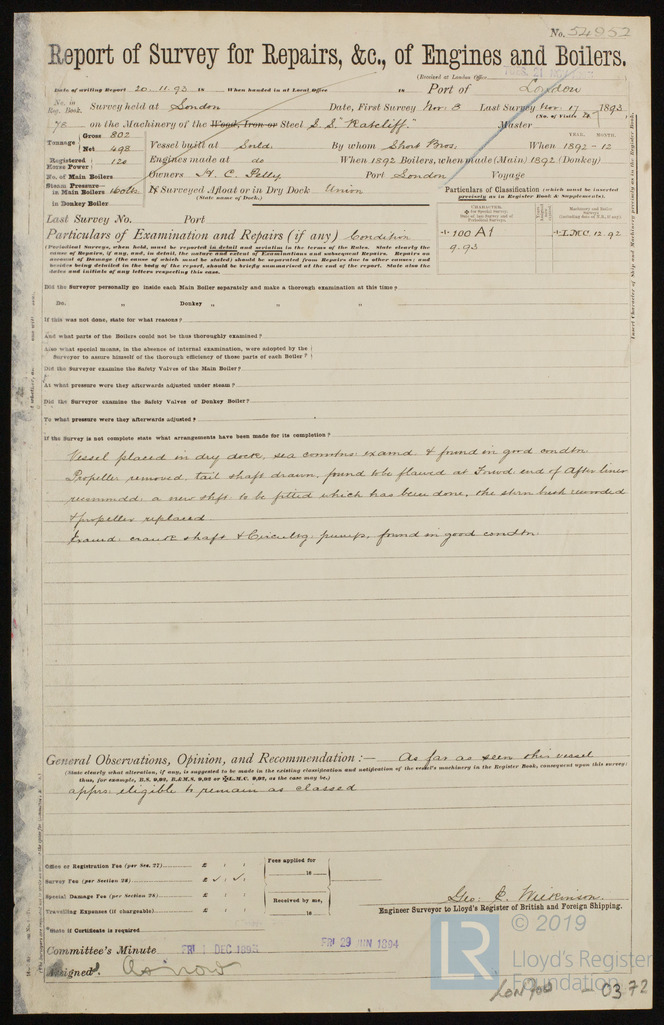 No. 54952
Report of Survey for Repairs, &c., of Engines and Boilers.
(Received at London Office TUES. 21 NOV 1893)
Date of writing Report 20.11.93 18 When handed in at Local Office 18 Port of London
No. in Reg. Book. Survey held at London Date, First Survey Nov. 3 Last Survey Nov. 17 1893
(No. of Visits
78 on the Machinery of the Wood, Iron or Steel S.S. "Ratcliff." Master
Tonnage Gross 802 Net 498
Vessel built at Sunld. By whom Short Bros. When 1892 - 12
YEAR. MONTH.
Registered Horse Power 120 Engines made at do When 1892 Boilers, when made (Main) 1892 (Donkey)
No. of Main Boilers Owners H. C. Pelly Port London Voyage
Steam Pressure in Main Boilers 160 lbs If Surveyed Afloat or in Dry Dock Union
(State name of Dock.)
in Donkey Boiler
Particulars of Classification (which must be inserted precisely as in Register Book & Supplements).
+ 100 A1
9.93
+ L.M.C. 12.92
Last Survey No. Port
Particulars of Examination and Repairs (if any) Condition
(Periodical Surveys, when held, must be reported in detail and seriatim in the terms of the Rules. State clearly the
cause of Repairs, if any, and, in detail, the nature and extent of Examinations and subsequent Repairs. Repairs on
account of Damage (the cause of which must be stated) should be separated from Repairs due to other causes; and
besides being detailed in the body of the report, should be briefly summarised at the end of the report. State also the
dates and initials of any letters respecting this case.
Did the Surveyor personally go inside each Main Boiler separately and make a thorough examination at this time?
Do. " Donkey " " "
If this was not done, state for what reasons?
And what parts of the Boilers could not be thus thoroughly examined?
Also what special means, in the absence of internal examination, were adopted by the
Surveyor to assure himself of the thorough efficiency of those parts of each Boiler?
Did the Surveyor examine the Safety Valves of the Main Boiler?
At what pressure were they afterwards adjusted under steam?
Did the Surveyor examine the Safety Valves of Donkey Boiler?
To what pressure were they afterwards adjusted?
If the Survey is not complete state what arrangements have been made for its completion?
Vessel placed in dry dock, sea connctns: examd. & found in good condtn:
Propeller removed, tail shaft drawn, found to be flawed at Forwd. end of After liner
recommdd. a new shft. to be fitted which has been done, the stern bush rewooded
& propeller replaced
Examd. crank shaft & Circultg. pumps, found in good condtn:
General Observations, Opinion, and Recommendation :— As far as seen this vessel
(State clearly what alteration, if any, is suggested to be made in the existing classification and notification of the vessel's machinery in the Register Book, consequent upon this survey:
thus, for example, B.S. 9,93, B.&M.S. 9,93 or L.M.C. 9,93, as the case may be.)
apprs. eligible to remain as classed
Office or Registration Fee (per Sec. 27) £
Survey Fee (per Section 28) £
Special Damage Fee (per Section 28) £
Travelling Expenses (if chargeable) £
Fee applied for
18
Received by me,
18
Geo: E. Wilkinson
Engineer Surveyor to Lloyd's Register of British and Foreign Shipping.
*State if Certificate is required
Committee's Minute FRI 1 DEC 1893 FRI 29 JUN 1894
Assigned. As now
© 2019
LR
Lloyd's Register
Foundation
LON 700 - 0372